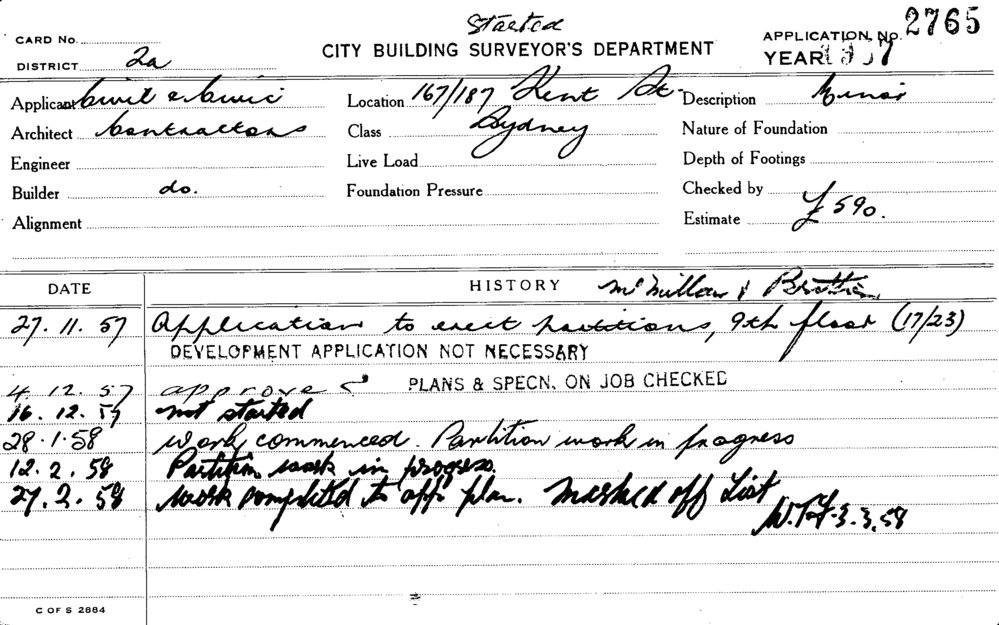 Started
CARD No. CITY BUILDING SURVEYOR'S DEPARTMENT APPLICATION No. 2765
DISTRICT 2a YEAR 1957
Applicant Civil & Civic Location 167/187 Kent St. Description Minor
Architect Contractors Class Sydney Nature of Foundation
Engineer Live Load Depth of Footings
Builder do. Foundation Pressure Checked by
Alignment Estimate £590.
DATE HISTORY McMillan & Brittain
27.11.57 Application to erect partitions, 9th floor (17/23)
DEVELOPMENT APPLICATION NOT NECESSARY
4.12.57 approved PLANS & SPECN. ON JOB CHECKED
16.12.57 not started
28.1.58 Work commenced. Partition work in progress
12.2.58 Partition work in progress.
27.2.58 Work completed to app. plan. Marked off List
3.3.58
C OF S 2884